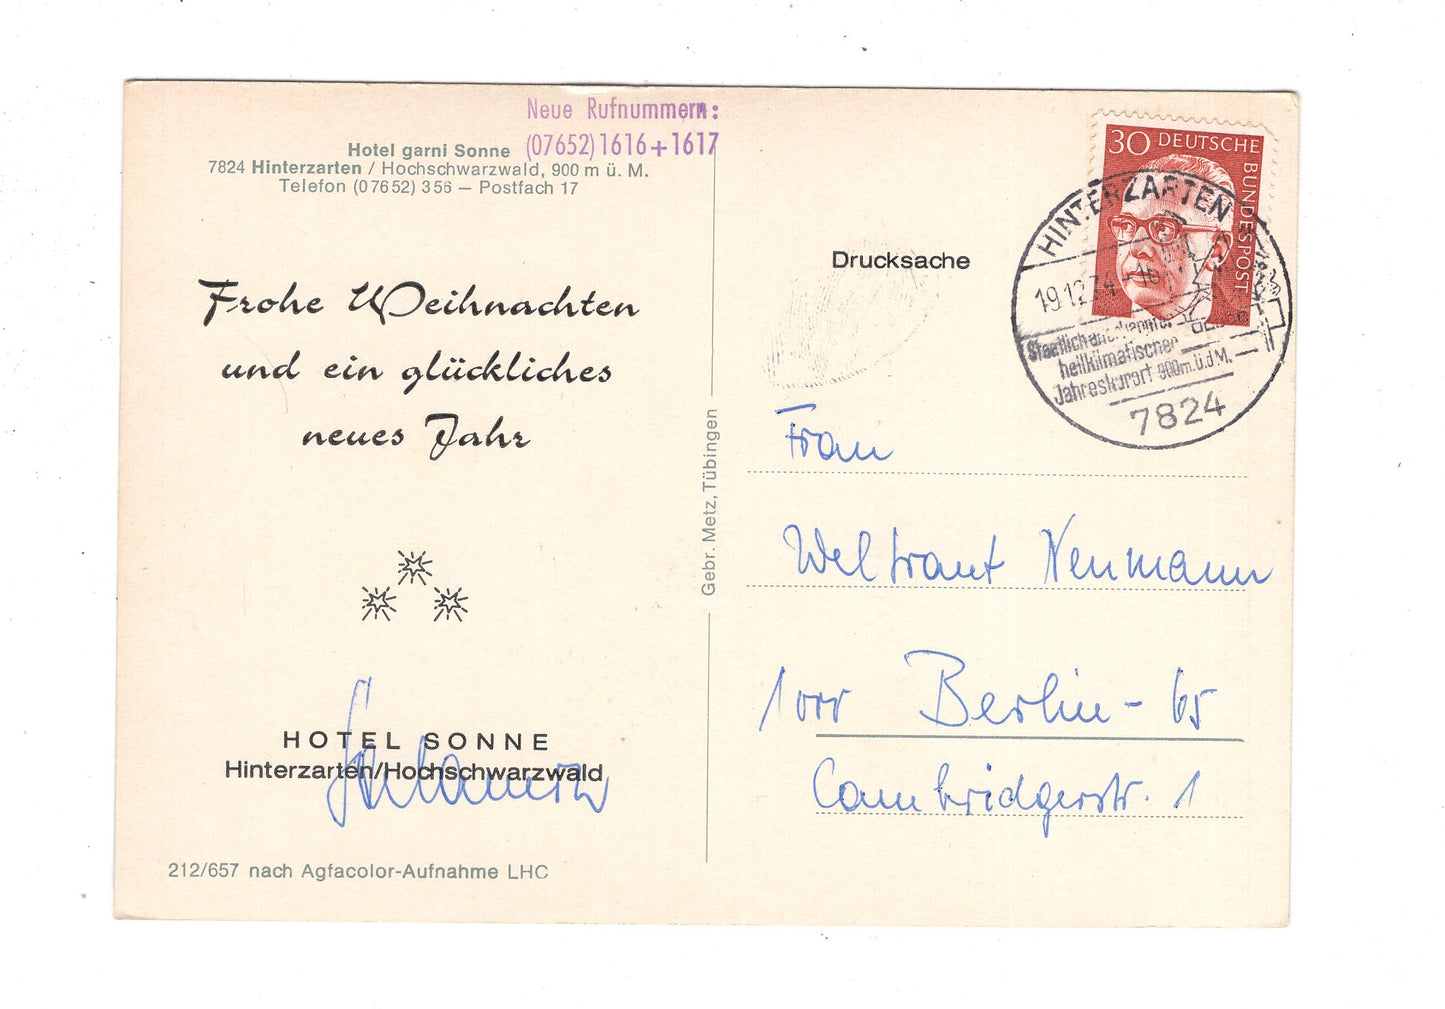 Neue Rufnummern:
(07652) 1616 + 1617
Hotel garni Sonne
7824 Hinterzarten / Hochschwarzwald, 900 m ü. M.
Telefon (07652) 356 — Postfach 17
Frohe Weihnachten
und ein glückliches
neues Jahr
HOTEL SONNE
Hinterzarten/Hochschwarzwald
212/657 nach Agfacolor-Aufnahme LHC
Gebr. Metz, Tübingen
Drucksache
30 DEUTSCHE BUNDESPOST
HINTERZARTEN
19.12.74
Staatlich anerkannter
heilklimatischer
Jahreskurort 900m.ü.d.M.
7824
Frau
Weltraut Neumann
1000 Berlin - 65
Cambridgerstr. 1